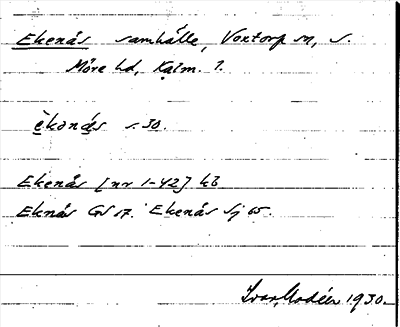 Ekenäs samhälle, Voxtorp sn, S.
Möre hd, Kalm. l.
èkonä́s s. 30.
Ekenäs [nr 1-42] kb
Eknäs GS 17. Ekenäs Sj 65.
Ivar Modéer 1930.